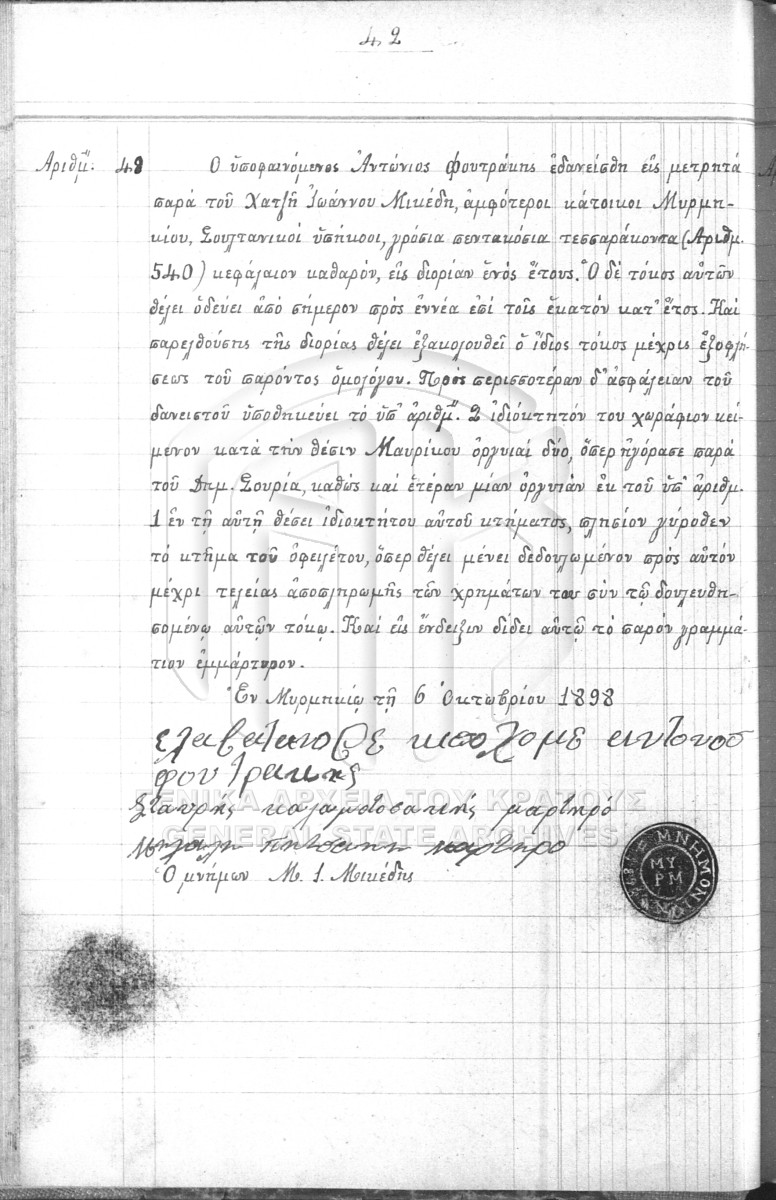 42
Ἀριθμ: 48 Ὁ ὑποφαινόμενος Ἀντώνιος Φουτράκης ἐδανείσθη εἰς μετρητά
παρά τοῦ Χατζῆ Ἰωάννου Μικέδη, ἀμφότεροι κάτοικοι Μυρμη-
κίου, Σουλτανικοί ὑπήκοοι, γρόσια πεντακόσια τεσσαράκοντα (Ἀριθμ.
540) κεφάλαιον καθαρόν, εἰς διορίαν ἑνός ἔτους. Ὁ δέ τόκος αὐτῶν
θέλει ὁδεύει ἀπό σήμερον πρός ἐννέα ἐπί τοῖς ἑκατόν κατ' ἔτος. Καί
παρελθούσης τῆς διορίας θέλει ἐξακολουθεῖ ὁ ἴδιος τόκος μέχρις ἐξοφλή-
σεως τοῦ παρόντος ὁμολόγου. Πρός περισσοτέραν δ' ἀσφάλειαν τοῦ
δανειστοῦ ὑποθηκεύει τό ὑπ' ἀριθμ. 2 ἰδιόκτητόν του χωράφιον κεί-
μενον κατά τήν θέσιν Μαυρίκου ὀργυιαί δύο, ὅπερ ἠγόρασε παρά
τοῦ Δημ. Σουρία, καθώς καί ἑτέραν μίαν ὀργυιάν ἐκ τοῦ ὑπ' ἀριθμ.
1 ἐν τῇ αὐτῇ θέσει ἰδιοκτήτου αὐτοῦ κτήματος, πλησίον γύροθεν
τό κτῆμα τοῦ ὀφειλέτου, ὅπερ θέλει μένει δεδουλωμένον πρός αὐτόν
μέχρι τελείας ἀποπληρωμῆς τῶν χρημάτων του σύν τῷ δουλευθη-
σομένῳ αὐτῶν τόκῳ. Καί εἰς ἔνδειξιν δίδει αὐτῷ τό παρόν γραμμά-
τιον ἐμμάρτυρον.
Ἐν Μυρμηκίῳ τῇ 6 Ὀκτωβρίου 1898
αντονοσ
φουτρακης
Σταυρής μαρτηρό
μαρτηρο
Ὁ μνήμων Μ. Ι. Μικέδης
ΜΝΗΜΟΝ
ΜΥ
ΡΜ
ΓΕΝΙΚΑ ΑΡΧΕΙΑ ΤΟΥ ΚΡΑΤΟΥΣ
GENERAL STATE ARCHIVES